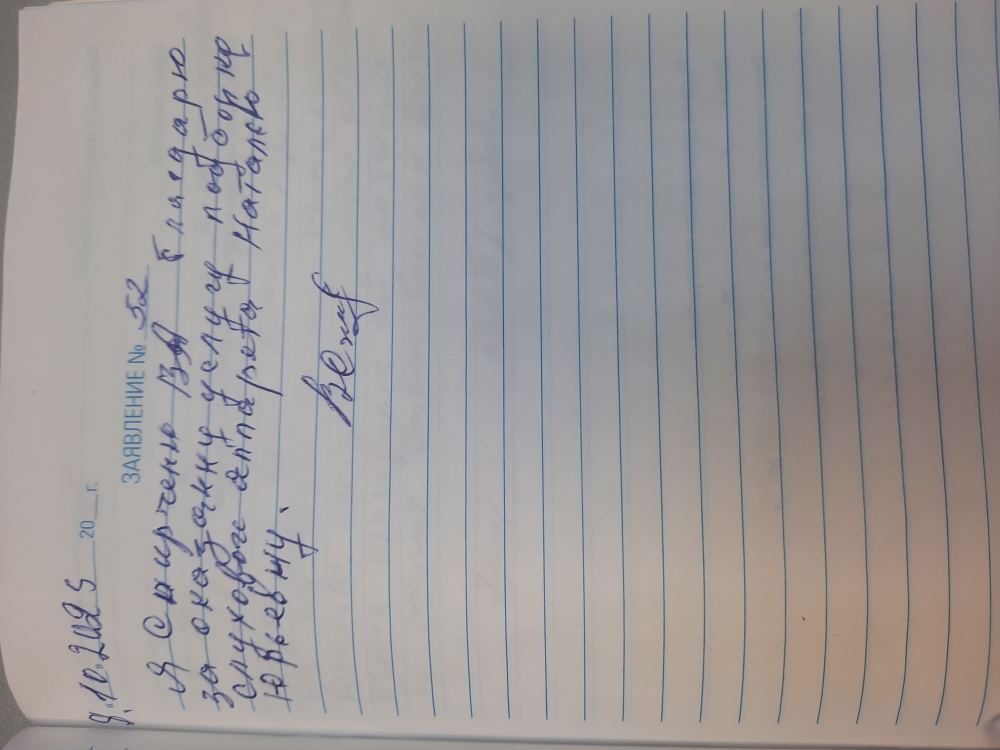 9.10.2025 20__г.
ЗАЯВЛЕНИЕ № 52
Я ВА благдарю
за оказанну услугу подборка
слухового аппарата Наталью
Юрьевну.